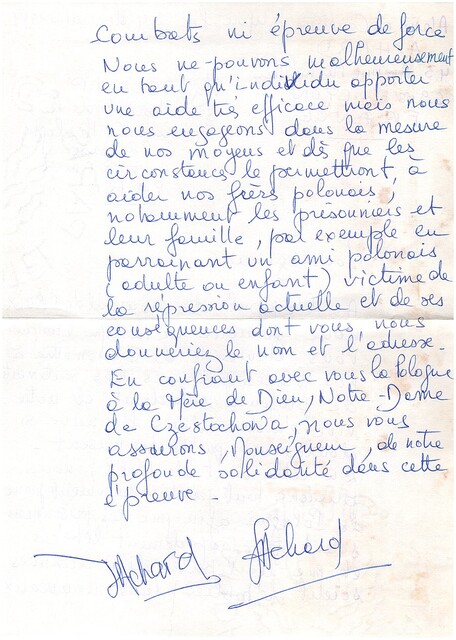 combats ni épreuve de force
Nous ne pouvons malheureusement
en tant qu'individu apporter
une aide très efficace mais nous
nous engageons dans la mesure
de nos moyens et dès que les
circonstances le permettront, à
aider nos frères polonais,
notamment les prisonniers et
leur famille, par exemple en
parrainant un ami polonais
(adulte ou enfant) victime de
la répression actuelle et de ses
conséquences dont vous nous
donneriez le nom et l'adresse.
En confiant avec vous la Pologne
à la Mère de Dieu, Notre-Dame
de Czestochowa, nous vous
assurons, Monseigneur, de notre
profonde solidarité dans cette
épreuve -
Achard Achard